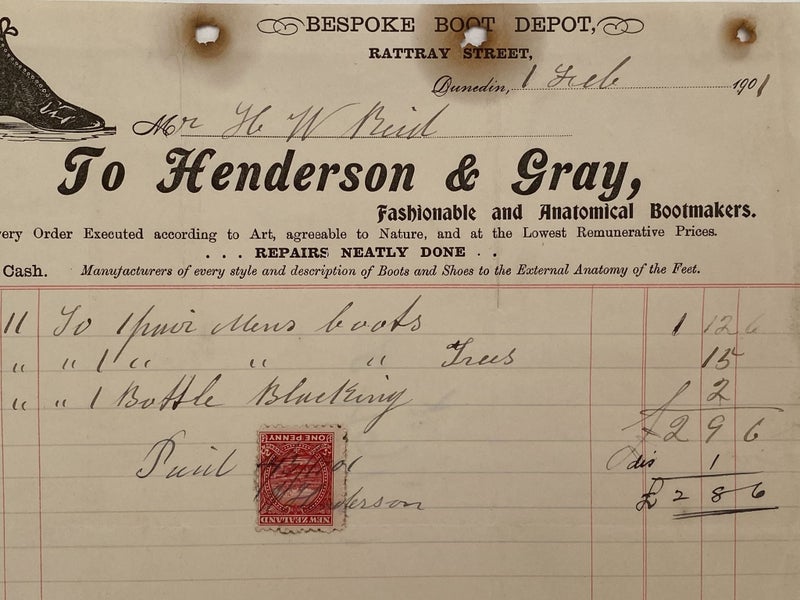 BESPOKE BOOT DEPOT,
RATTRAY STREET,
Dunedin, 1 Feb 1901
Mr H W Reid
To Henderson & Gray,
Fashionable and Anatomical Bootmakers.
very Order Executed according to Art, agreeable to Nature, and at the Lowest Remunerative Prices.
. . . REPAIRS NEATLY DONE . .
Cash. Manufacturers of every style and description of Boots and Shoes to the External Anatomy of the Feet.
11 To 1 pair Mens boots 1 12 6
" " 1 " " " Trees 15
" " 1 Bottle Blacking 2
£2 9 6
Paid
dis 1
£2 8 6
ONE PENNY
NEW ZEALAND